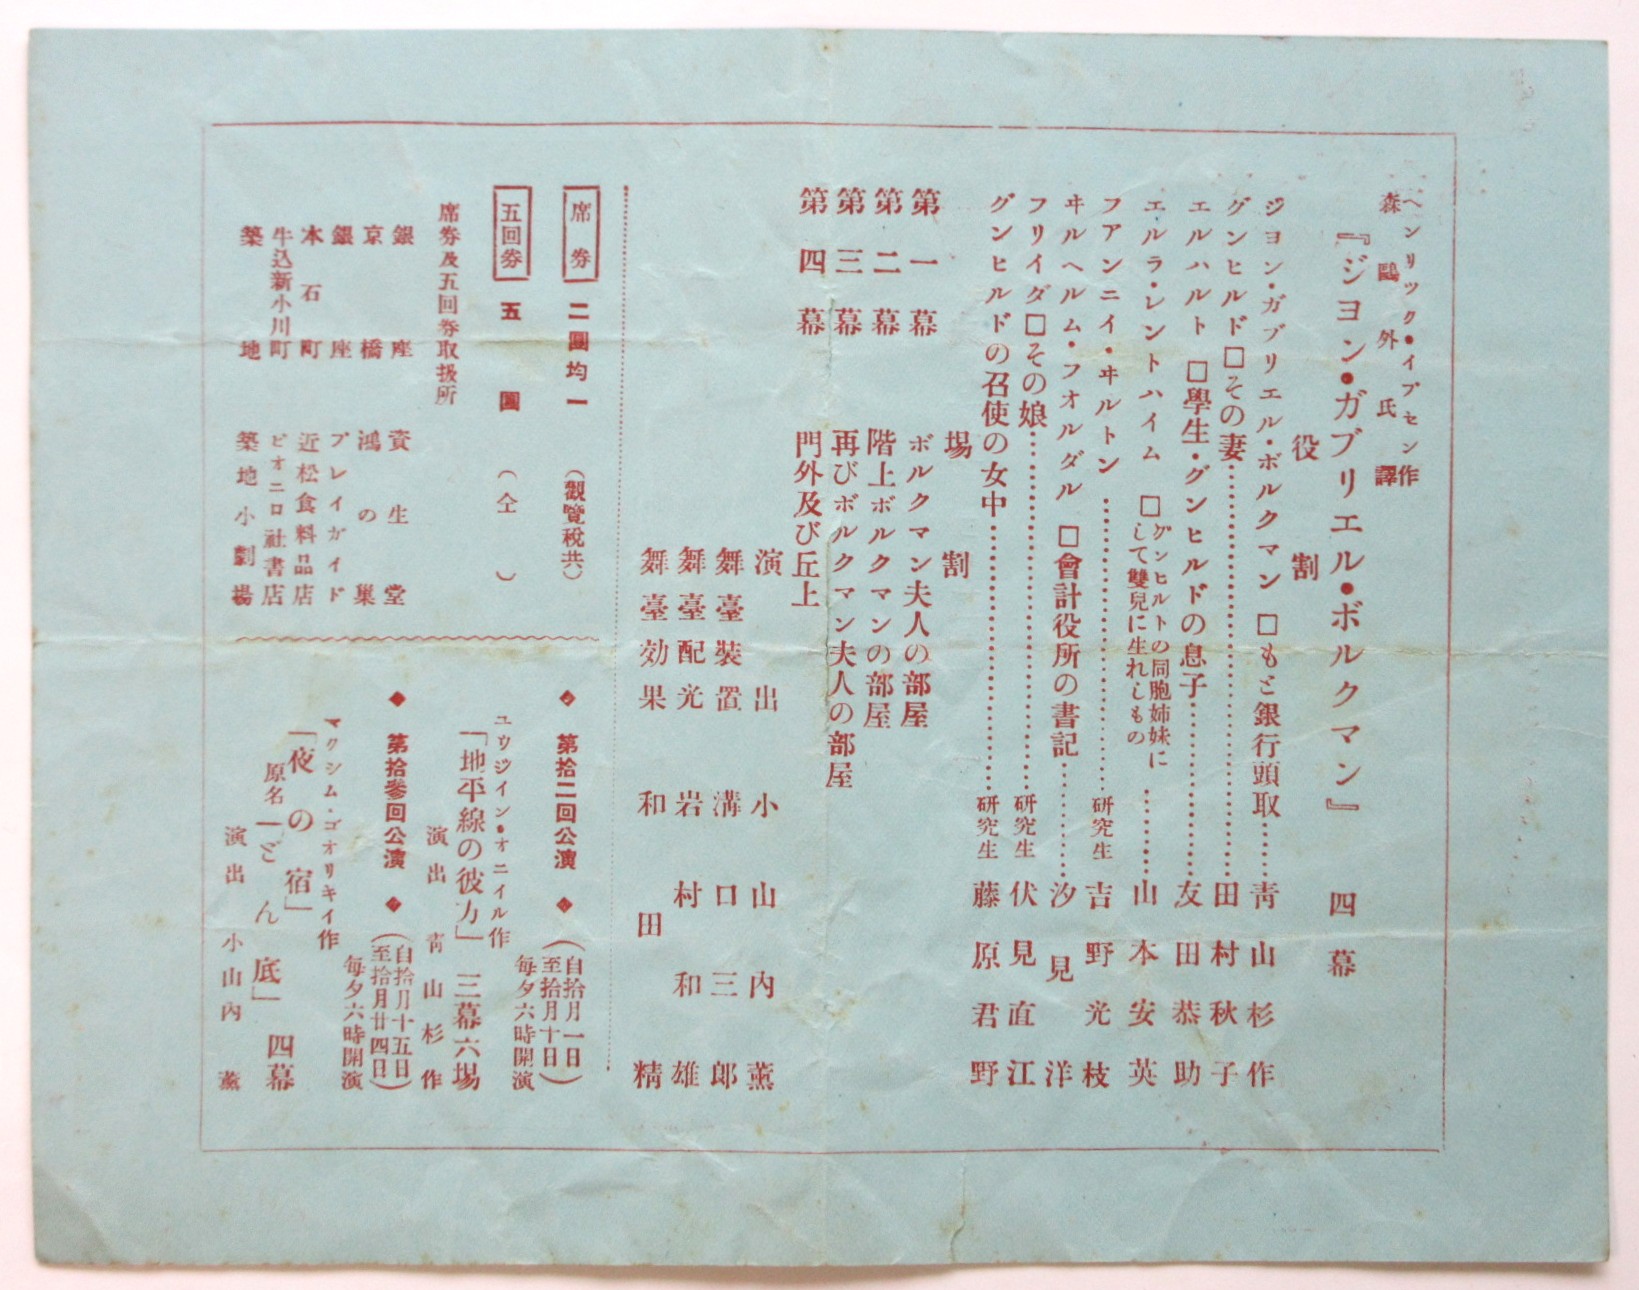 ヘンリック・イプセン作
森鷗外氏譯
『ジヨン・ガブリエル・ボルクマン』 四幕
役割
ジヨン・ガブリエル・ボルクマン □もと銀行頭取……青山杉作
グンヒルド□その妻……田村秋子
エルハルト □學生・グンヒルドの息子……友田恭助
エルラ・レントハイム □グンヒルトの同胞姉妹にして雙兒に生れしもの……山本安英
フアンニイ・ヰルトン……研究生 吉野光枝
ヰルヘルム・フオルダル □會計役所の書記……汐見洋
フリイダ□その娘……研究生 伏見直江
グンヒルドの召使の女中……研究生 藤原君野
場割
第一幕 ボルクマン夫人の部屋
第二幕 階上ボルクマンの部屋
第三幕 再びボルクマン夫人の部屋
第四幕 門外及び丘上
演出 小山内薫
舞臺裝置 溝口三郎
舞臺配光 岩村和雄
舞臺効果 和田精
席券 二圓均一 (觀覽税共)
五回券 五圓 (仝)
席券及五回券取扱所
銀座 資生堂
京橋 鴻の巢
銀座 プレイガイド
本石町 近松食料品店
牛込新小川町 ピオニロ社書店
築地 築地小劇場
◆第拾二回公演◆(自拾月一日至拾月十日)
每夕六時開演
ユウジイン・オニイル作
「地平線の彼方」 三幕六場
演出 靑山杉作
◆第拾參回公演◆(自拾月十五日至拾月廿四日)
每夕六時開演
マクシム・ゴオリキイ作
「夜の宿」 四幕
原名「どん底」
演出 小山內薫